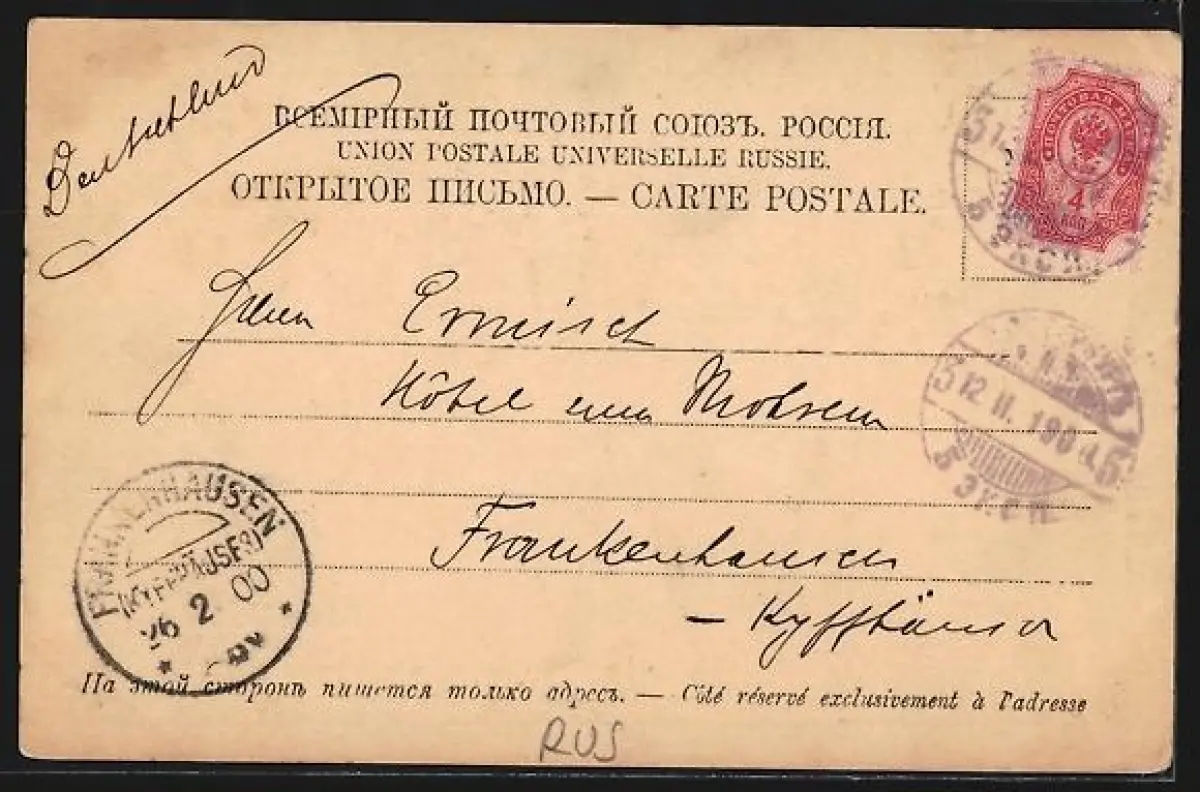 Deutschland
ВСЕМІРНЫЙ ПОЧТОВЫЙ СОЮЗЪ. РОССІЯ.
UNION POSTALE UNIVERSELLE RUSSIE.
ОТКРЫТОЕ ПИСЬМО. — CARTE POSTALE.
ПОЧТОВАЯ МАРКА
4
КОП.
5 ЭКСП.
Herrn Ermisch
Hôtel zum Mohren
3 12 II. 190
5 ЭКСП.
Frankenhausen
- Kyffhäuser
FRANKENHAUSEN
(KYFFHÄUSER)
26 2 00
На этой сторонѣ пишется только адресъ. — Côté réservé exclusivement à l'adresse
RUS